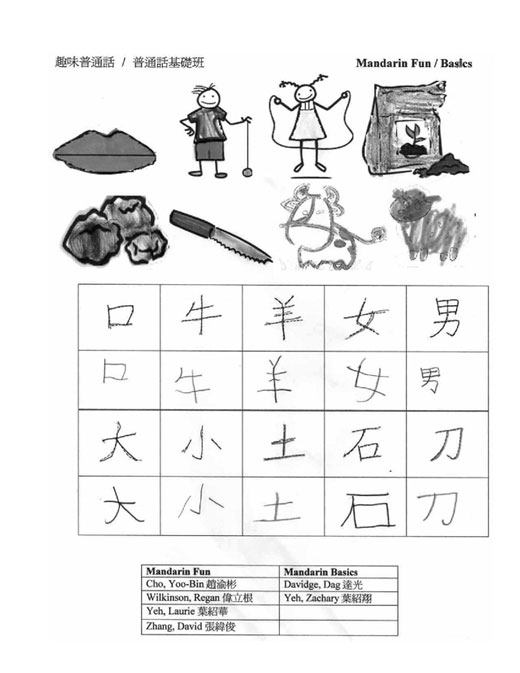 趣味普通話 / 普通話基礎班 Mandarin Fun / Basics
口 牛 羊 女 男
口 牛 羊 女 男
大 小 土 石 刀
大 小 土 石 刀
Mandarin Fun Mandarin Basics
Cho, Yoo-Bin 趙渝彬 Davidge, Dag 達光
Wilkinson, Regan 偉立根 Yeh, Zachary 葉紹翔
Yeh, Laurie 葉紹華
Zhang, David 張緯俊